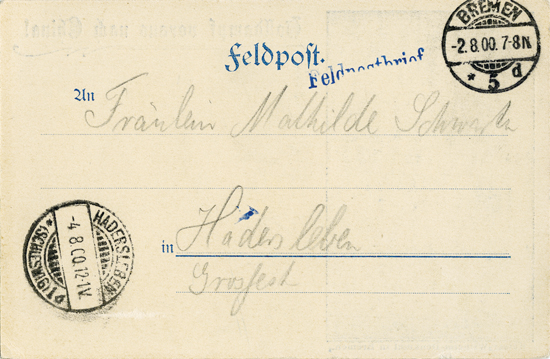 BREMEN
-2.8.00.7-8N
* 5 d
Feldpost.
Feldpostbrief
An Fräulein Mathilde
in Hadersleben
HADERSLEBEN
-4.8.00.12-1V.
* (SCHLESWIG) *